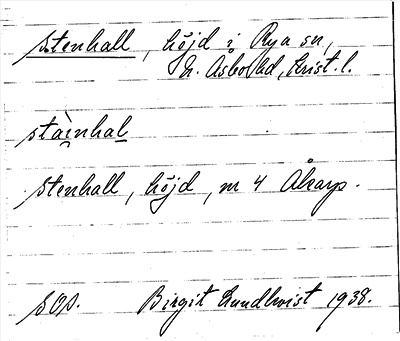 stenhall, höjd i Rya sn,
N. Åsbo hd, Krist. l.
stàinhal
stenhall, höjd, m 4 Åkarp.
sop. Birgit Lundkvist 1938.